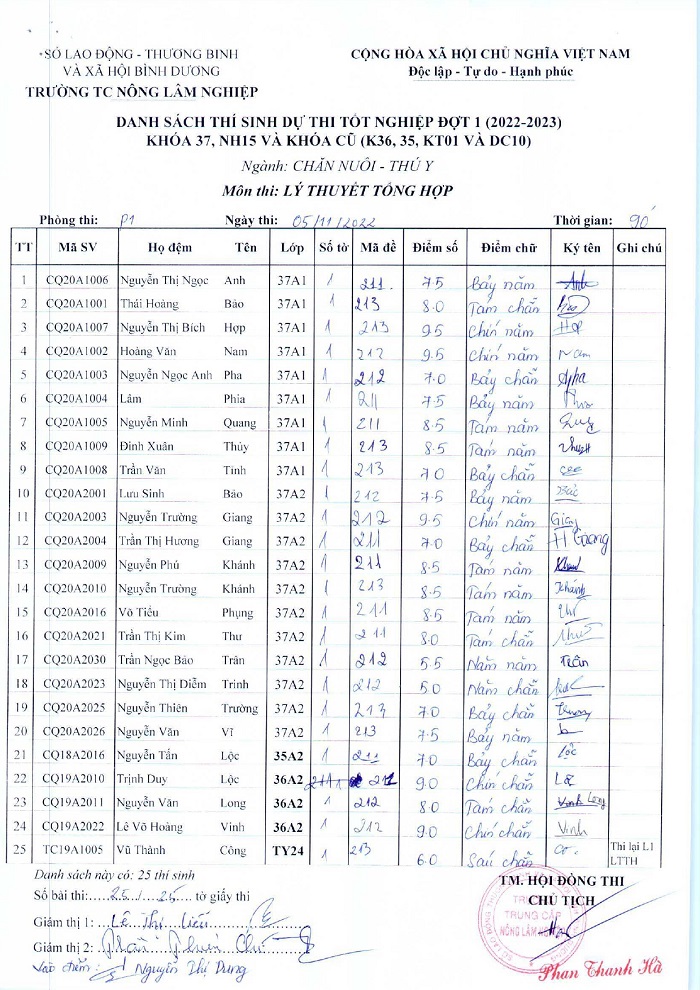 SỞ LAO ĐỘNG - THƯƠNG BINH
VÀ XÃ HỘI BÌNH DƯƠNG
TRƯỜNG TC NÔNG LÂM NGHIỆP
CỘNG HÒA XÃ HỘI CHỦ NGHĨA VIỆT NAM
Độc lập - Tự do - Hạnh phúc
DANH SÁCH THÍ SINH DỰ THI TỐT NGHIỆP ĐỢT 1 (2022-2023)
KHÓA 37, NH15 VÀ KHÓA CŨ (K36, 35, KT01 VÀ DC10)
Ngành: CHĂN NUÔI - THÚ Y
Môn thi: LÝ THUYẾT TỔNG HỢP
Phòng thi: P1 Ngày thi: 05/11/2022 Thời gian: 90'
TT Mã SV Họ đệm Tên Lớp Số tờ Mã đề Điểm số Điểm chữ Ký tên Ghi chú
1 CQ20A1006 Nguyễn Thị Ngọc Anh 37A1 1 211 7.5 Bảy năm Anh
2 CQ20A1001 Thái Hoàng Bảo 37A1 1 213 8.0 Tám chẵn
3 CQ20A1007 Nguyễn Thị Bích Hợp 37A1 1 213 9.5 Chín năm Hợp
4 CQ20A1002 Hoàng Văn Nam 37A1 1 212 9.5 Chín năm Nam
5 CQ20A1003 Nguyễn Ngọc Anh Pha 37A1 1 212 7.0 Bảy chẵn
6 CQ20A1004 Lâm Phia 37A1 1 211 7.5 Bảy năm
7 CQ20A1005 Nguyễn Minh Quang 37A1 1 211 8.5 Tám năm
8 CQ20A1009 Đinh Xuân Thủy 37A1 1 213 8.5 Tám năm
9 CQ20A1008 Trần Văn Tính 37A1 1 213 7.0 Bảy chẵn
10 CQ20A2001 Lưu Sinh Bảo 37A2 1 212 7.5 Bảy năm
11 CQ20A2003 Nguyễn Trường Giang 37A2 1 212 9.5 Chín năm Giang
12 CQ20A2004 Trần Thị Hương Giang 37A2 1 211 7.0 Bảy chẵn H Giang
13 CQ20A2009 Nguyễn Phú Khánh 37A2 1 211 8.5 Tám năm
14 CQ20A2010 Nguyễn Trường Khánh 37A2 1 213 8.5 Tám năm Khánh
15 CQ20A2016 Võ Tiểu Phụng 37A2 1 211 8.5 Tám năm
16 CQ20A2021 Trần Thị Kim Thư 37A2 1 211 8.0 Tám chẵn
17 CQ20A2030 Trần Ngọc Bảo Trân 37A2 1 212 5.5 Năm năm Trân
18 CQ20A2023 Nguyễn Thị Diễm Trinh 37A2 1 212 5.0 Năm chẵn
19 CQ20A2025 Nguyễn Thiên Trường 37A2 1 213 7.0 Bảy chẵn
20 CQ20A2026 Nguyễn Văn Vĩ 37A2 1 213 7.5 Bảy năm
21 CQ18A2016 Nguyễn Tấn Lộc 35A2 1 211 7.0 Bảy chẵn Lộc
22 CQ19A2010 Trịnh Duy Lộc 36A2 211 9.0 Chín chẵn
23 CQ19A2011 Nguyễn Văn Long 36A2 1 212 8.0 Tám chẵn Vinh Long
24 CQ19A2022 Lê Võ Hoàng Vinh 36A2 1 212 9.0 Chín chẵn Vinh
25 TC19A1005 Vũ Thành Công TY24 1 213 6.0 Sáu chẵn Thi lại L1 LTTH
Danh sách này có: 25 thí sinh
Số bài thi: 25 / 25 tờ giấy thi
Giám thị 1: Lê Thị Liễu
Giám thị 2:
Vào điểm: Nguyễn Thị Dung
TM. HỘI ĐỒNG THI
CHỦ TỊCH
TRUNG CẤP
NÔNG LÂM
Phan Thanh Hà